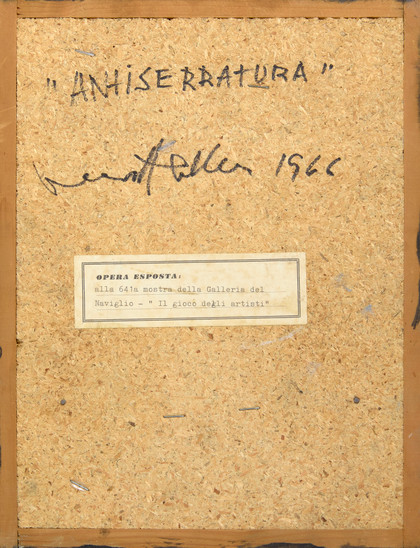 "ANTISERRATURA"
1966
OPERA ESPOSTA:
alla 641a mostra della Galleria del
Naviglio - " Il gioco degli artisti"